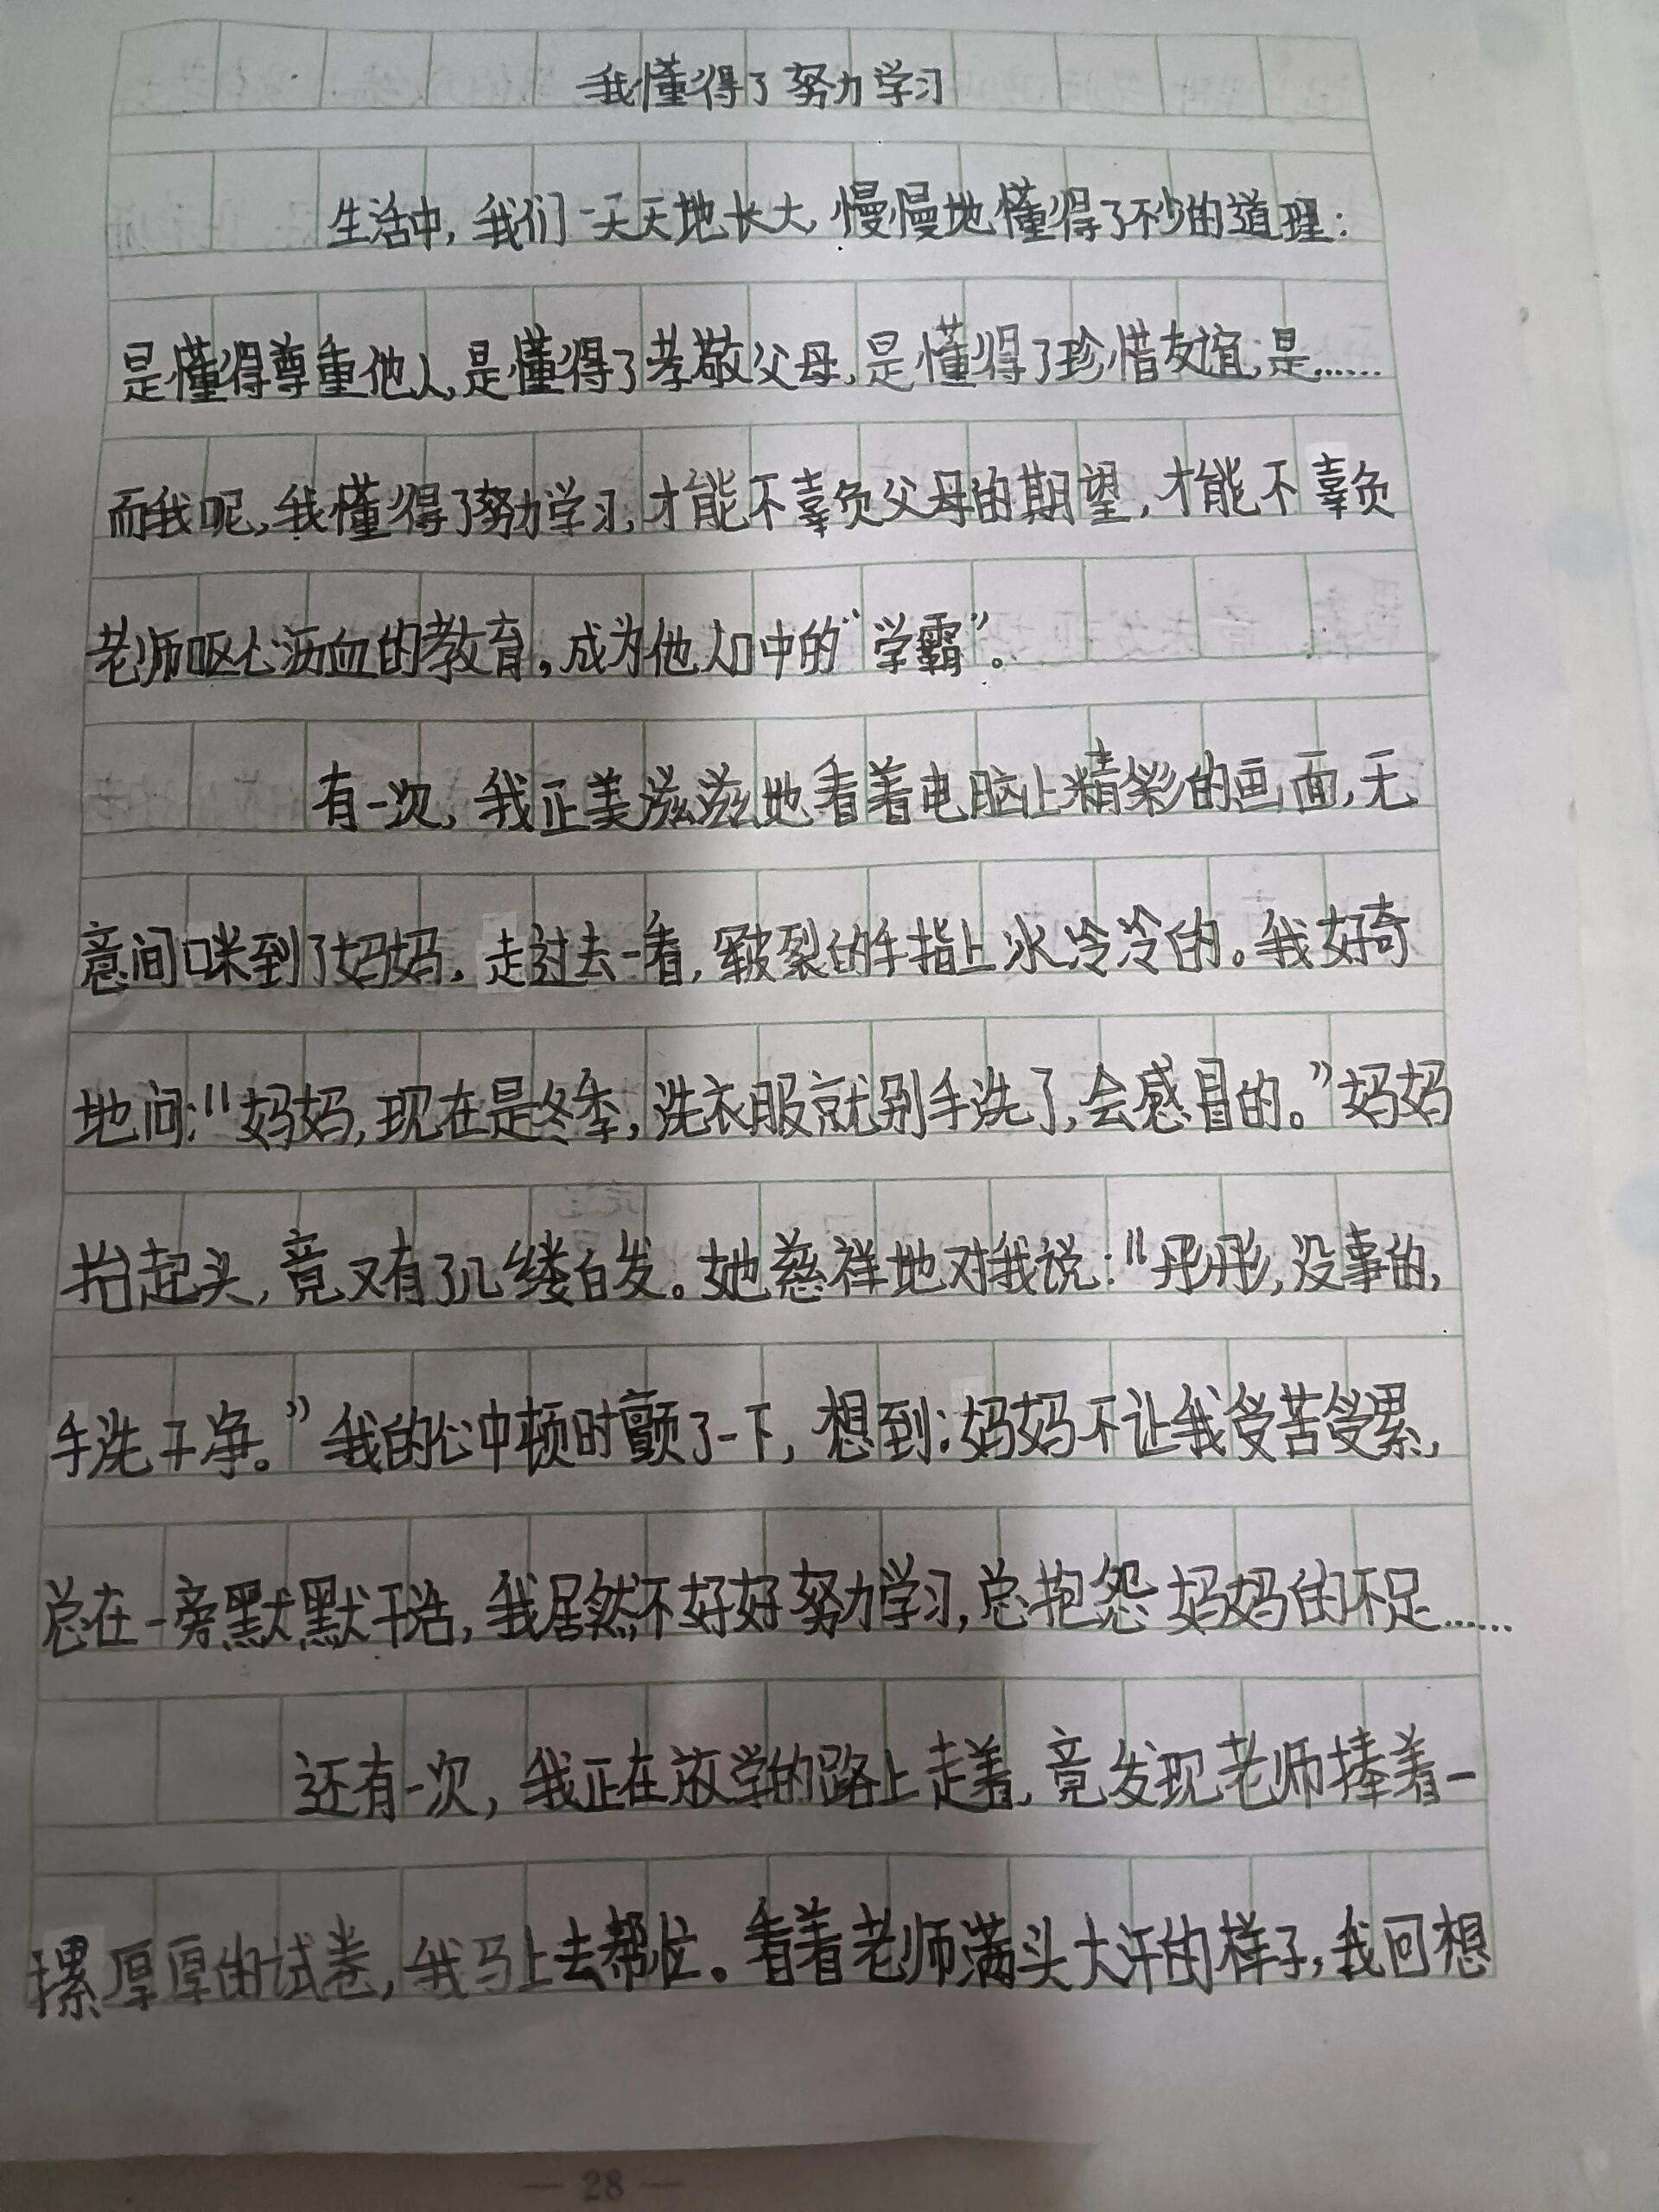 我懂得了努力学习
生活中,我们一天天地长大,慢慢地懂得了不少的道理:
是懂得尊重他人,是懂得了孝敬父母,是懂得了珍惜友谊,是……
而我呢,我懂得了努力学习,才能不辜负父母的期望,才能不辜负
老师呕心沥血的教育,成为他人口中的“学霸”。
有一次,我正美滋滋地看着电脑上精彩的画面,无
意间咪到了妈妈,走过去一看,皲裂的手指上冰冷冷的。我好奇
地问:“妈妈,现在是冬季,洗衣服就别手洗了,会感冒的。”妈妈
抬起头,竟又有了几缕白发。她慈祥地对我说:“彤彤,没事的,
手洗干净。”我的心中顿时颤了一下,想到:妈妈不让我受苦受累,
总在一旁默默干活,我居然不好好努力学习,总抱怨妈妈的不足……
还有一次,我正在放学的路上走着,竟发现老师捧着一
摞厚厚的试卷,我马上去帮忙。看着老师满头大汗的样子,我回想
— 28 —